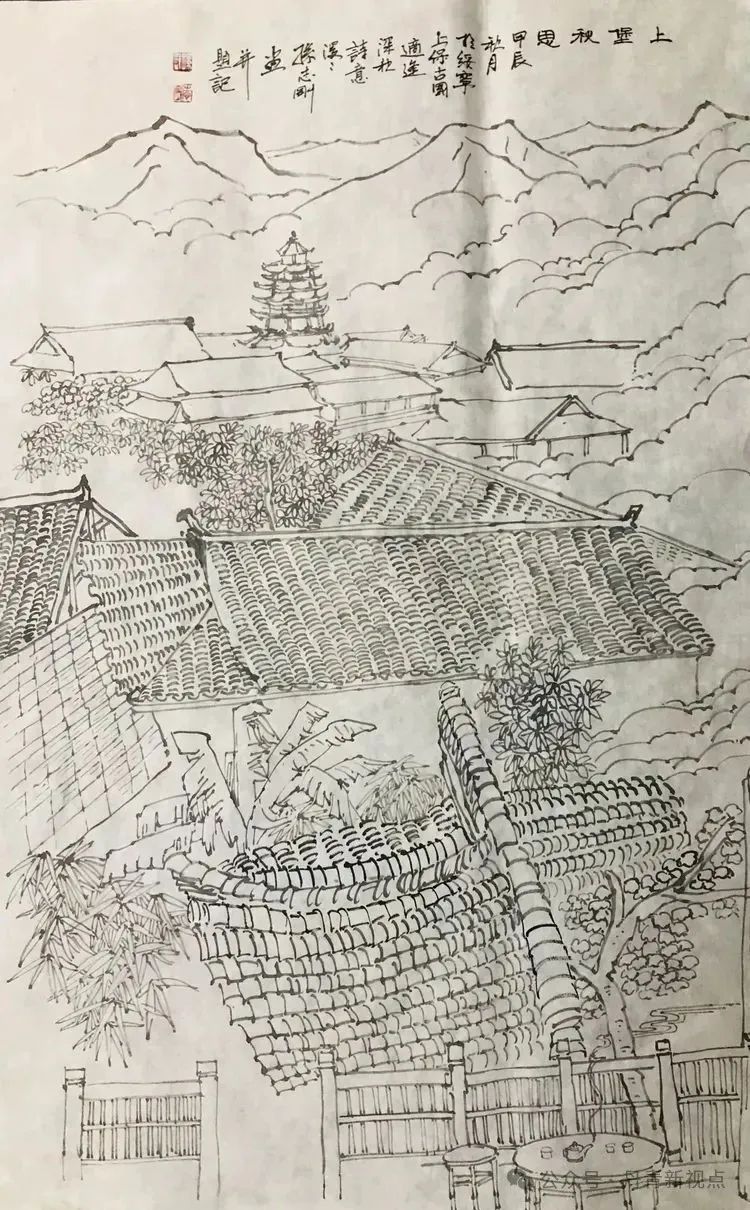 上堡秋思
甲辰
秋月
於綏寧
上保古國
適逢
深秋
詩意
孫志剛
畫
并
題記
公众号 · 丹青新视点